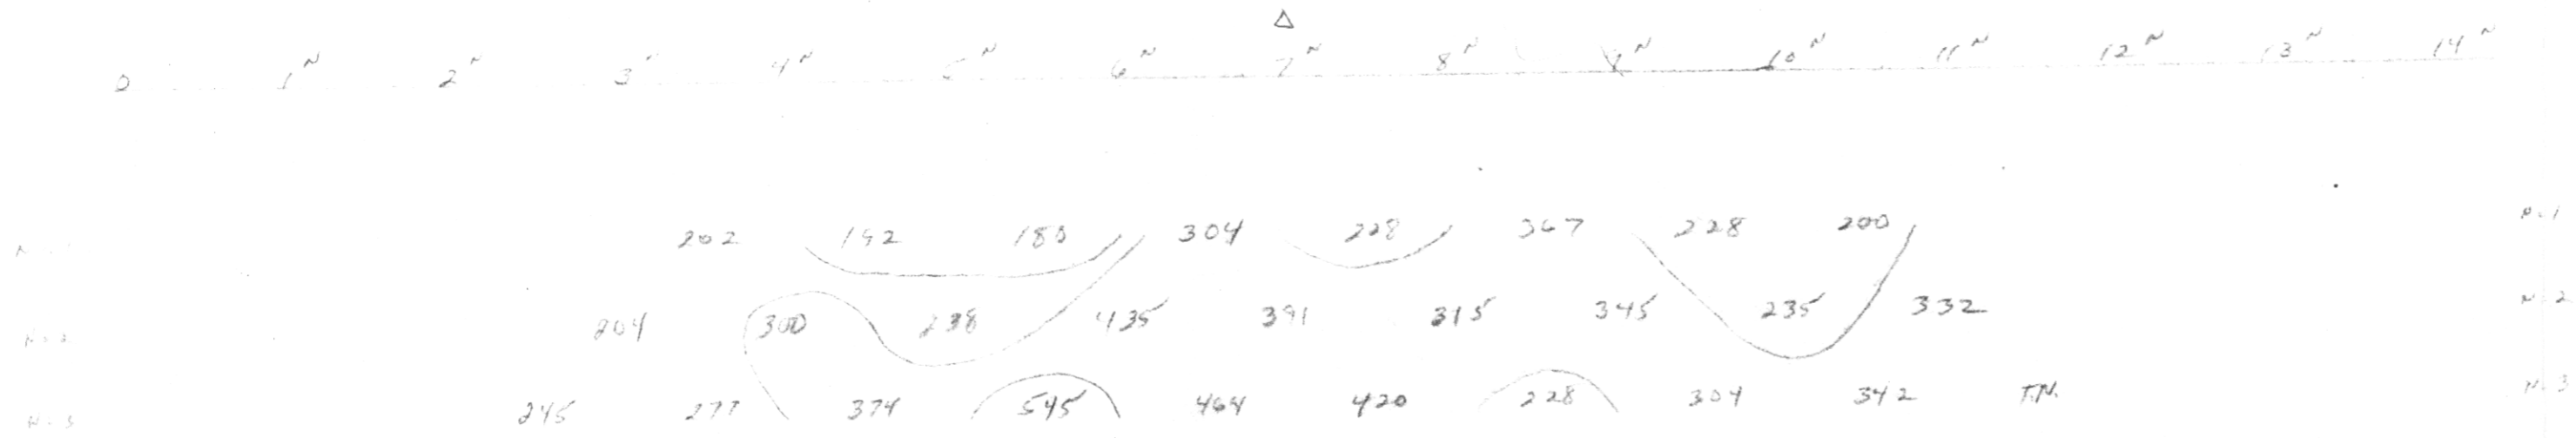 Δ
0 1N 2N 3 4N 5N 6N 7N 8N 9N 10N 11N 12N 13N 14N
202 192 180 304 228 367 228 200 N=1
N=2 204 300 238 435 391 315 345 235 332 N=2
N=3 245 277 374 545 464 420 228 304 342 T.N. N=3